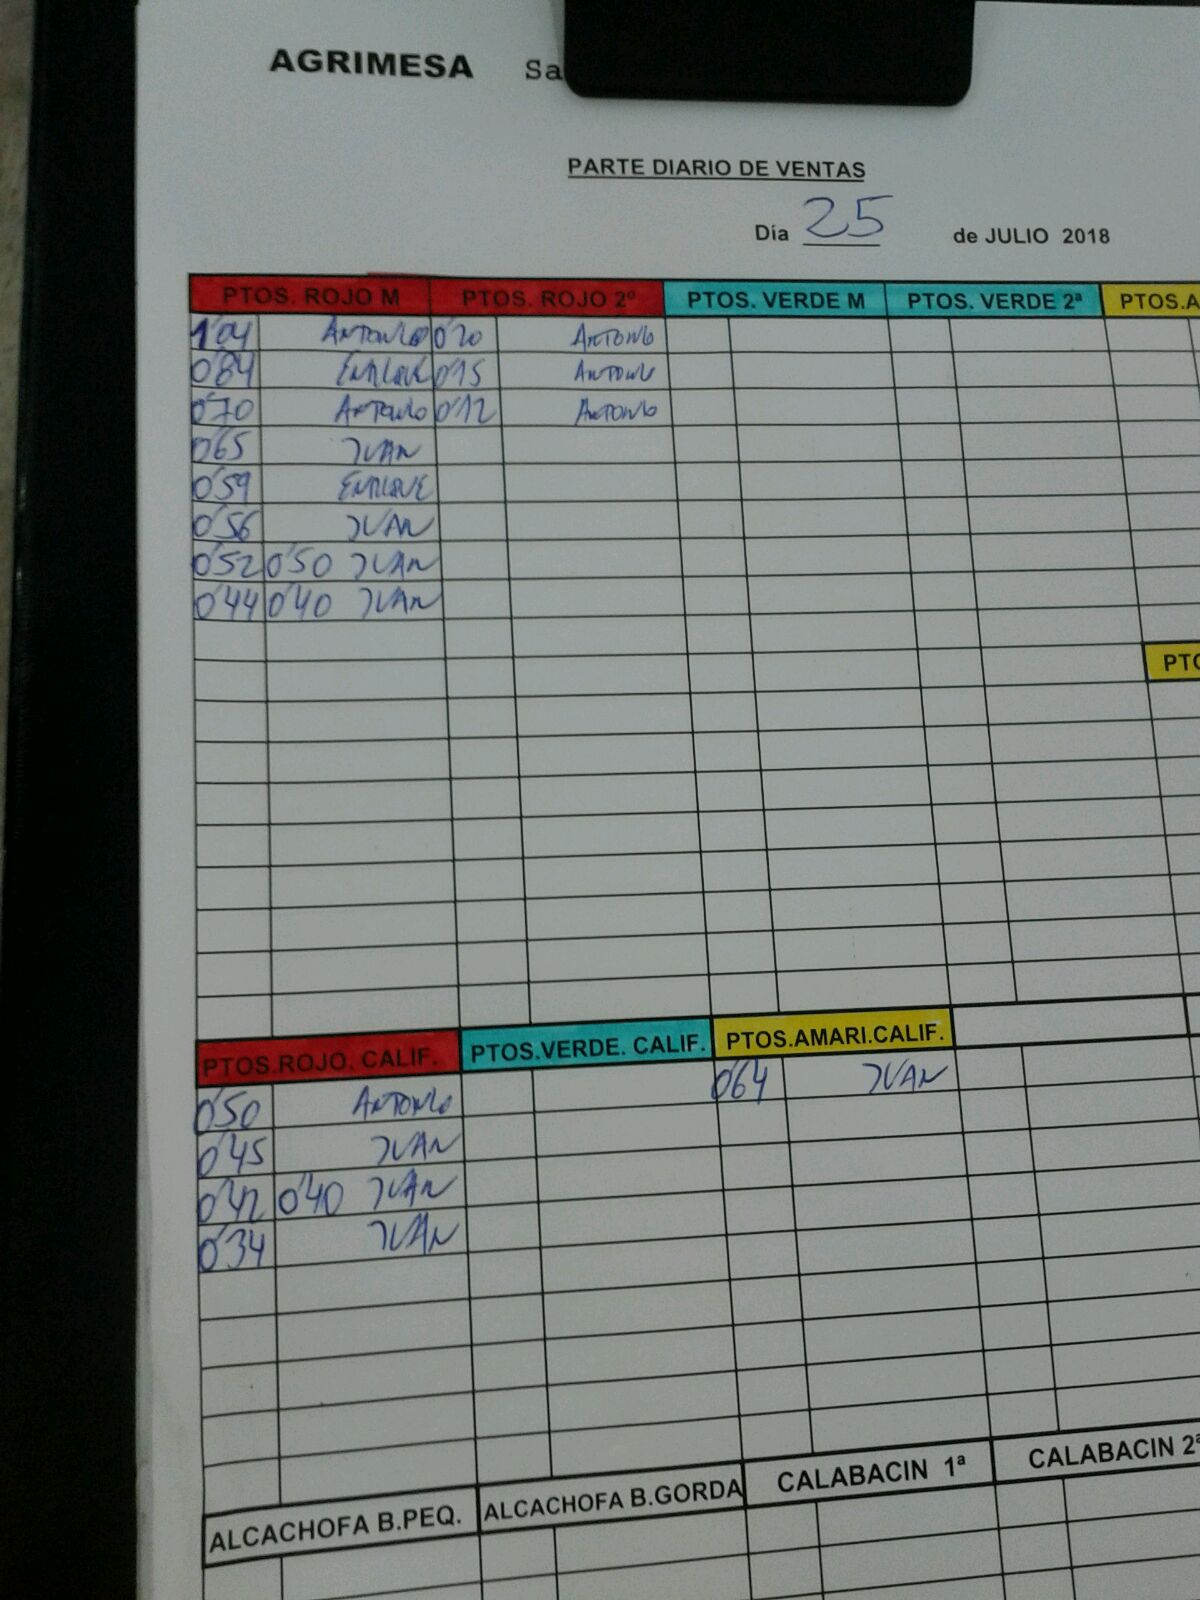 AGRIMESA Sa
PARTE DIARIO DE VENTAS
Día 25 de JULIO 2018
PTOS. ROJO M PTOS. ROJO 2º PTOS. VERDE M PTOS. VERDE 2ª PTOS.A
1'04 ANTONIO 0'20 ANTONIO
0'84 ENRIQUE 0'15 ANTONIO
0'70 ANTONIO 0'12 ANTONIO
0'65 JUAN
0'59 ENRIQUE
0'56 JUAN
0'52 0'50 JUAN
0'44 0'40 JUAN
PTO
PTOS.ROJO. CALIF. PTOS.VERDE. CALIF. PTOS.AMARI.CALIF.
0'50 ANTONIO 0'64 JUAN
0'45 JUAN
0'42 0'40 JUAN
0'34 JUAN
ALCACHOFA B.PEQ. ALCACHOFA B.GORDA CALABACIN 1ª CALABACIN 2ª